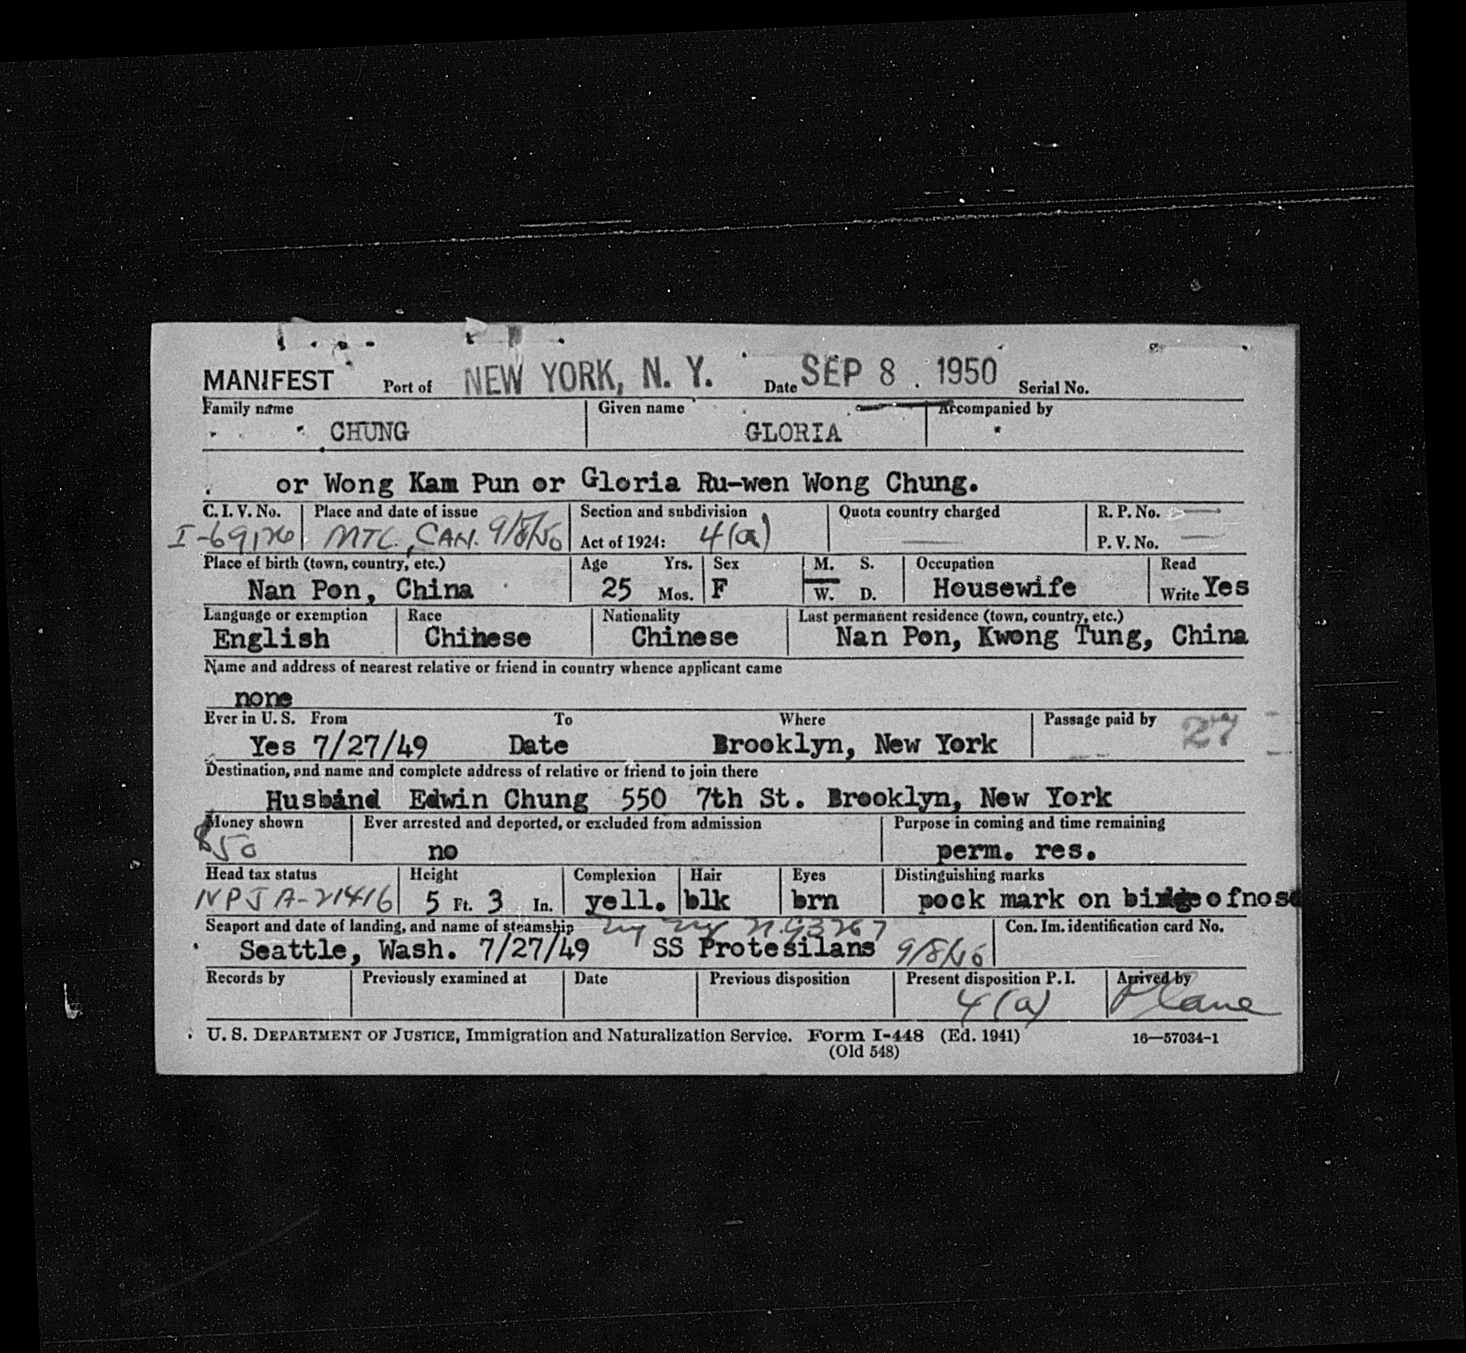 MANIFEST Port of NEW YORK, N. Y. Date SEP 8 . 1950 Serial No.
Family name Given name Accompanied by
CHUNG GLORIA
or Wong Kam Pun or Gloria Ru-wen Wong Chung.
C. I. V. No. Place and date of issue Section and subdivision Quota country charged R. P. No.
I-69126 MTL, CAN. 9/8/50 Act of 1924: 4(a) P. V. No.
Place of birth (town, country, etc.) Age Yrs. Sex M. S. Occupation Read
Nan Pon, China 25 Mos. F W. D. Housewife Write Yes
Language or exemption Race Nationality Last permanent residence (town, country, etc.)
English Chinese Chinese Nan Pon, Kwong Tung, China
Name and address of nearest relative or friend in country whence applicant came
none
Ever in U. S. From To Where Passage paid by 27
Yes 7/27/49 Date Brooklyn, New York
Destination, and name and complete address of relative or friend to join there
Husband Edwin Chung 550 7th St. Brooklyn, New York
Money shown Ever arrested and deported, or excluded from admission Purpose in coming and time remaining
$50 no perm. res.
Head tax status Height Complexion Hair Eyes Distinguishing marks
A-21416 5 Ft. 3 In. yell. blk brn pock mark on of nose
Seaport and date of landing, and name of steamship Con. Im. identification card No.
Seattle, Wash. 7/27/49 SS Protesilans 9/8/50
Records by Previously examined at Date Previous disposition Present disposition P. I. Arrived by
4(a) Plane
U. S. DEPARTMENT OF JUSTICE, Immigration and Naturalization Service. Form I-448 (Ed. 1941) 16—57034-1
(Old 548)